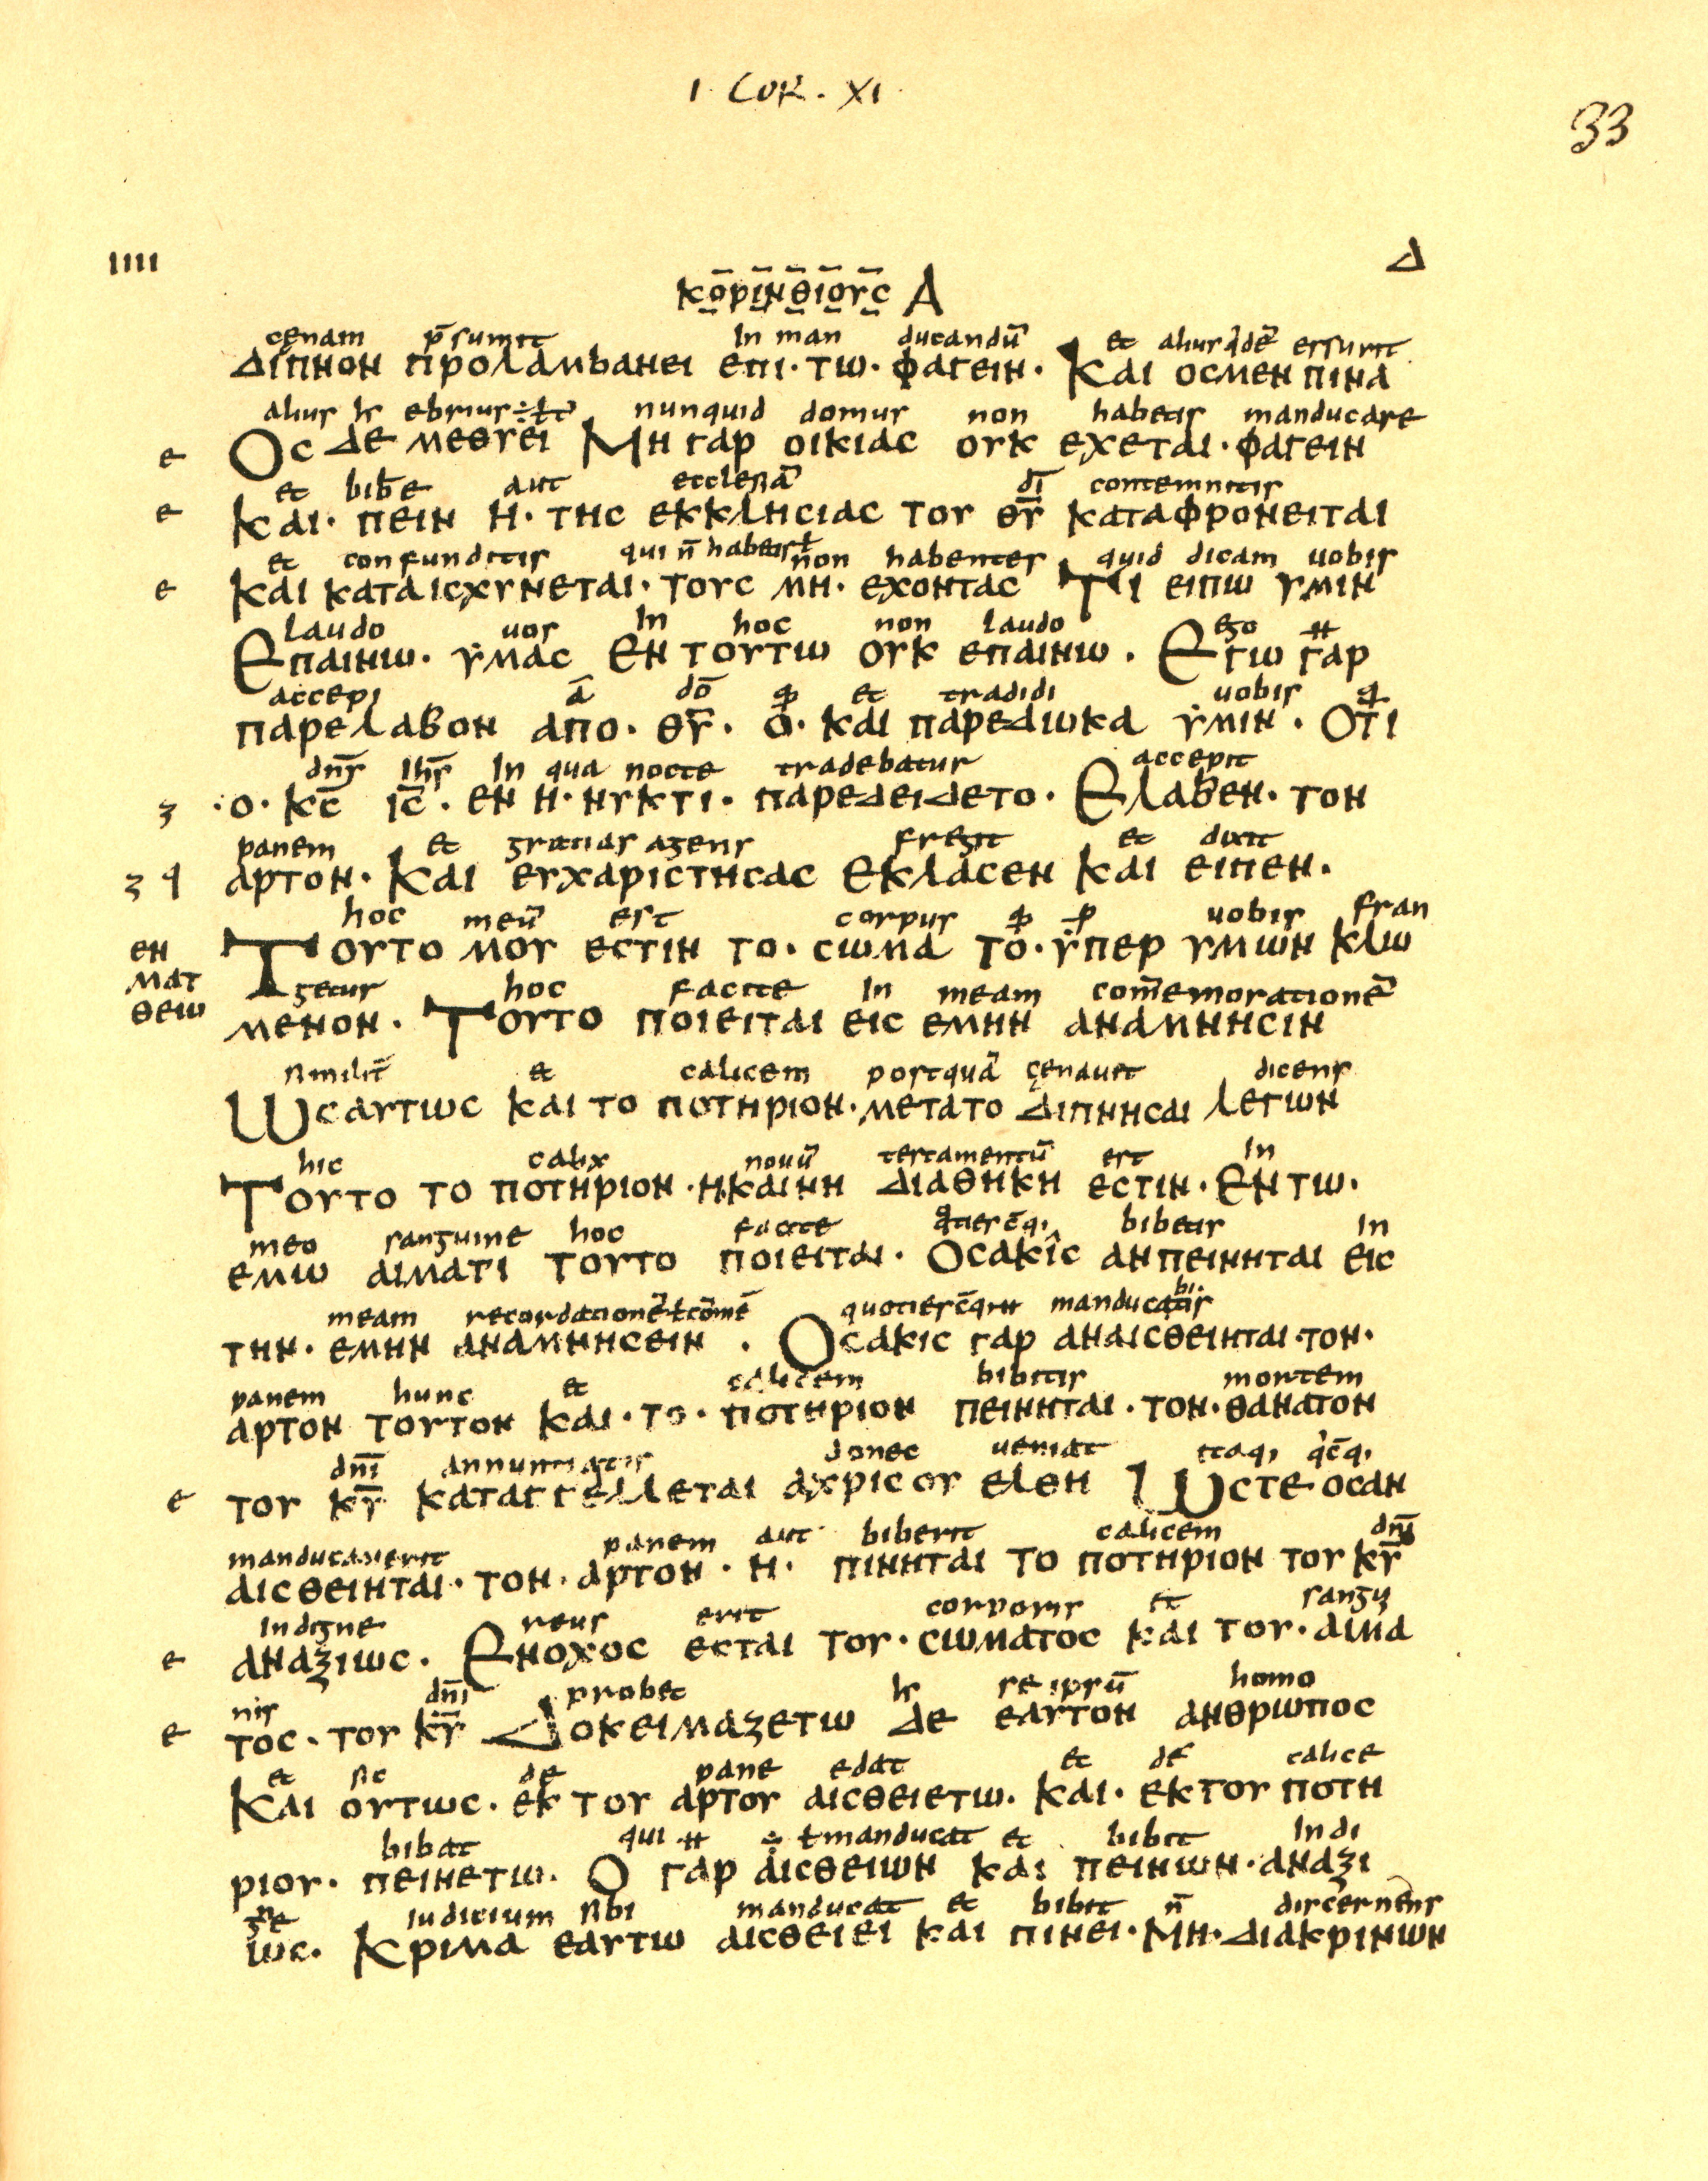 I COR. XI
33
IIII Δ
ΚΟΡΙΝΘΙΟΥC Α
cenam p̄sumit in man ducandū et aliusq̄dē esurit
ΔΙΠΝΟΝ ΠΡΟΛΑΜΒΑΝΕΙ ΕΠΙ· ΤΩ· ΦΑΓΕΙΝ· ΚΑΙ ΟCΜΕΝ ΠΙΝΑ
alius ebrius nunquid domus non habetis manducare
e ΟC ΔΕ ΜΕΘΥΕΙ ΜΗ ΓΑΡ ΟΙΚΙΑC ΟΥΚ ΕΧΕΤΑΙ· ΦΑΓΕΙΝ
et bib̄e aut ecclesiā dī contemnitis
e ΚΑΙ· ΠΕΙΝ Η· ΤΗC ΕΚΚΛΗCΙΑC ΤΟΥ Θ̅Υ̅ ΚΑΤΑΦΡΟΝΕΙΤΑΙ
et confunditis qui n̄ habent ł non habentes quid dicam uobis
e ΚΑΙ ΚΑΤΑΙCΧΥΝΕΤΑΙ· ΤΟΥC ΜΗ· ΕΧΟΝΤΑC ΤΙ ΕΙΠΩ ΥΜΙΝ
Laudo uos in hoc non laudo ego
ΕΠΑΙΝΩ· ΥΜΑC ΕΝ ΤΟΥΤΩ ΟΥΚ ΕΠΑΙΝΩ· ΕΓΩ ΓΑΡ
accepi ā dō et tradidi uobis
ΠΑΡΕΛΑΒΟΝ ΑΠΟ· Θ̅Υ̅· Ο· ΚΑΙ ΠΑΡΕΔΩΚΑ ΥΜΙΝ· ΟΤΙ
dn̄s ihs̄ in qua nocte tradebatur accepit
ʒ ·Ο· Κ̅C̅ Ι̅C̅· ΕΝ Η· ΝΥΚΤΙ· ΠΑΡΕΔΕΙΔΕΤΟ· ΕΛΑΒΕΝ· ΤΟΝ
panem et gratias agens fregit et dixit
ʒ q ΑΡΤΟΝ· ΚΑΙ ΕΥΧΑΡΙCΤΗCΑC ΕΚΛΑCΕΝ ΚΑΙ ΕΙΠΕΝ·
hoc meū est corpus uobis fran
ΕΝ ΤΟΥΤΟ ΜΟΥ ΕCΤΙΝ ΤΟ· CΩΜΑ ΤΟ· ΥΠΕΡ ΥΜΩΝ ΚΛΩ
ΜΑΤ getur hoc facite in meam com̄emorationē
ΘΕΙΩ ΜΕΝΟΝ· ΤΟΥΤΟ ΠΟΙΕΙΤΑΙ ΕΙC ΕΜΗΝ ΑΝΑΜΝΗCΙΝ
similit̄ et calicem postquā cenauit dicens
ΩCΑΥΤΩC ΚΑΙ ΤΟ ΠΟΤΗΡΙΟΝ· ΜΕΤΑΤΟ ΔΙΠΝΗCΑΙ ΛΕΓΩΝ
hic calix nouū testamentū est in
ΤΟΥΤΟ ΤΟ ΠΟΤΗΡΙΟΝ· Η·ΚΑΙΝΗ ΔΙΑΘΗΚΗ ΕCΤΙΝ· ΕΝ ΤΩ·
meo sanguine hoc facite bibetis in
ΕΜΩ ΑΙΜΑΤΙ ΤΟΥΤΟ ΠΟΙΕΙΤΑΙ· ΟCΑΚΙC ΑΝΠΕΙΝΗΤΑΙ ΕΙC
meam recordationē ł cōmē quotiescq manducatis
ΤΗΝ· ΕΜΗΝ ΑΝΑΜΝΗCΕΙΝ · ΟCΑΚΙC ΓΑΡ ΑΝΑΙCΘΕΙΗΤΑΙ·ΤΟΝ·
panem hunc et calicem bibitis mortem
ΑΡΤΟΝ ΤΟΥΤΟΝ ΚΑΙ· ΤΟ· ΠΟΤΗΡΙΟΝ ΠΕΙΝΗΤΑΙ· ΤΟΝ·ΘΑΝΑΤΟΝ
dn̄i annuntiatis donec ueniat itaq, q̄cq,
e ΤΟΥ Κ̅Υ̅ ΚΑΤΑΓΓΕΛΛΕΤΑΙ ΑΧΡΙC ΟΥ ΕΛΘΗ ΩCΤΕ ΟCΑΝ
manducauerit panem aut biberit calicem dn̄i
ΑΙCΘΕΙΗΤΑΙ· ΤΟΝ· ΑΡΤΟΝ· Η· ΠΙΝΗΤΑΙ ΤΟ ΠΟΤΗΡΙΟΝ ΤΟΥ Κ̅Υ̅
indigne reus erit corporis et sangui
e ΑΝΑΞΙΩC· ΕΝΟΧΟC ΕCΤΑΙ ΤΟΥ· CΩΜΑΤΟC ΚΑΙ ΤΟΥ· ΑΙΜΑ
nis dn̄i probet se ipsū homo
e ΤΟC· ΤΟΥ Κ̅Υ̅ ΔΟΚΕΙΜΑΖΕΤΩ ΔΕ ΕΑΥΤΟΝ ΑΝΘΡΩΠΟC
et sic de pane edat et de calice
ΚΑΙ ΟΥΤΩC· ΕΚ ΤΟΥ ΑΡΤΟΥ ΑΙCΘΕΙΕΤΩ· ΚΑΙ· ΕΚ ΤΟΥ ΠΟΤΗ
bibat qui ł manducat et bibit indi
ΡΙΟΥ· ΠΕΙΝΕΤΩ· Ο ΓΑΡ ΑΙCΘΕΙΩΝ ΚΑΙ ΠΕΙΝΩΝ· ΑΝΑΞΙ
gne iudicium sibi manducat et bibit n̄ discernens
ΩC· ΚΡΙΜΑ ΕΑΥΤΩ ΑΙCΘΕΙΕΙ ΚΑΙ ΠΙΝΕΙ· ΜΗ· ΔΙΑΚΡΙΝΩΝ